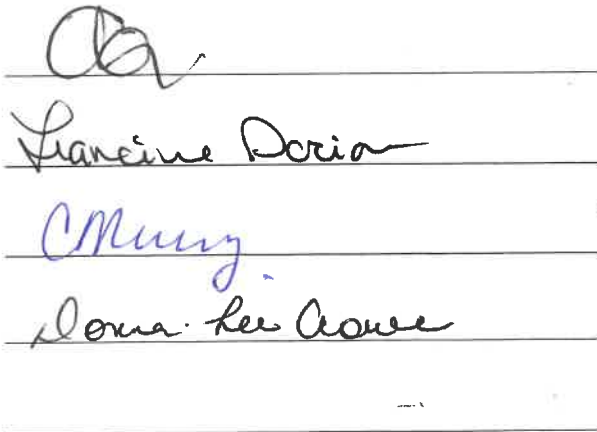 Francine Dorion
C Murray
Donna-Lee Crowe